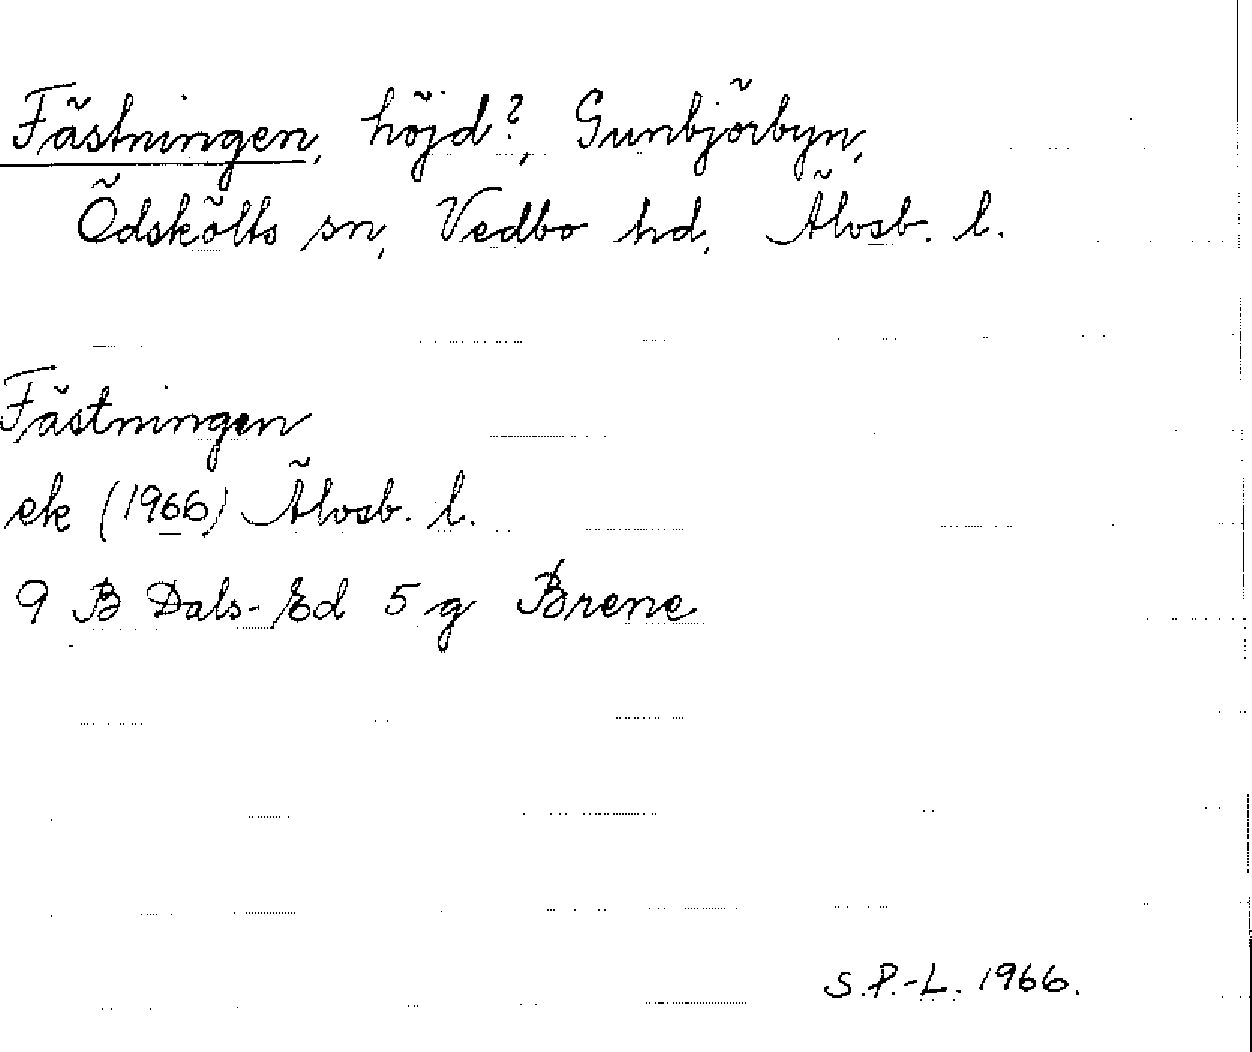 Fästningen, höjd?, Gunbjörbyn,
Ödskölts sn, Vedbo hd, Älvsb. l.
Fästningen
ek (1966) Älvsb. l.
9 B Dals-Ed 5 g Brene
S.P.-L. 1966.